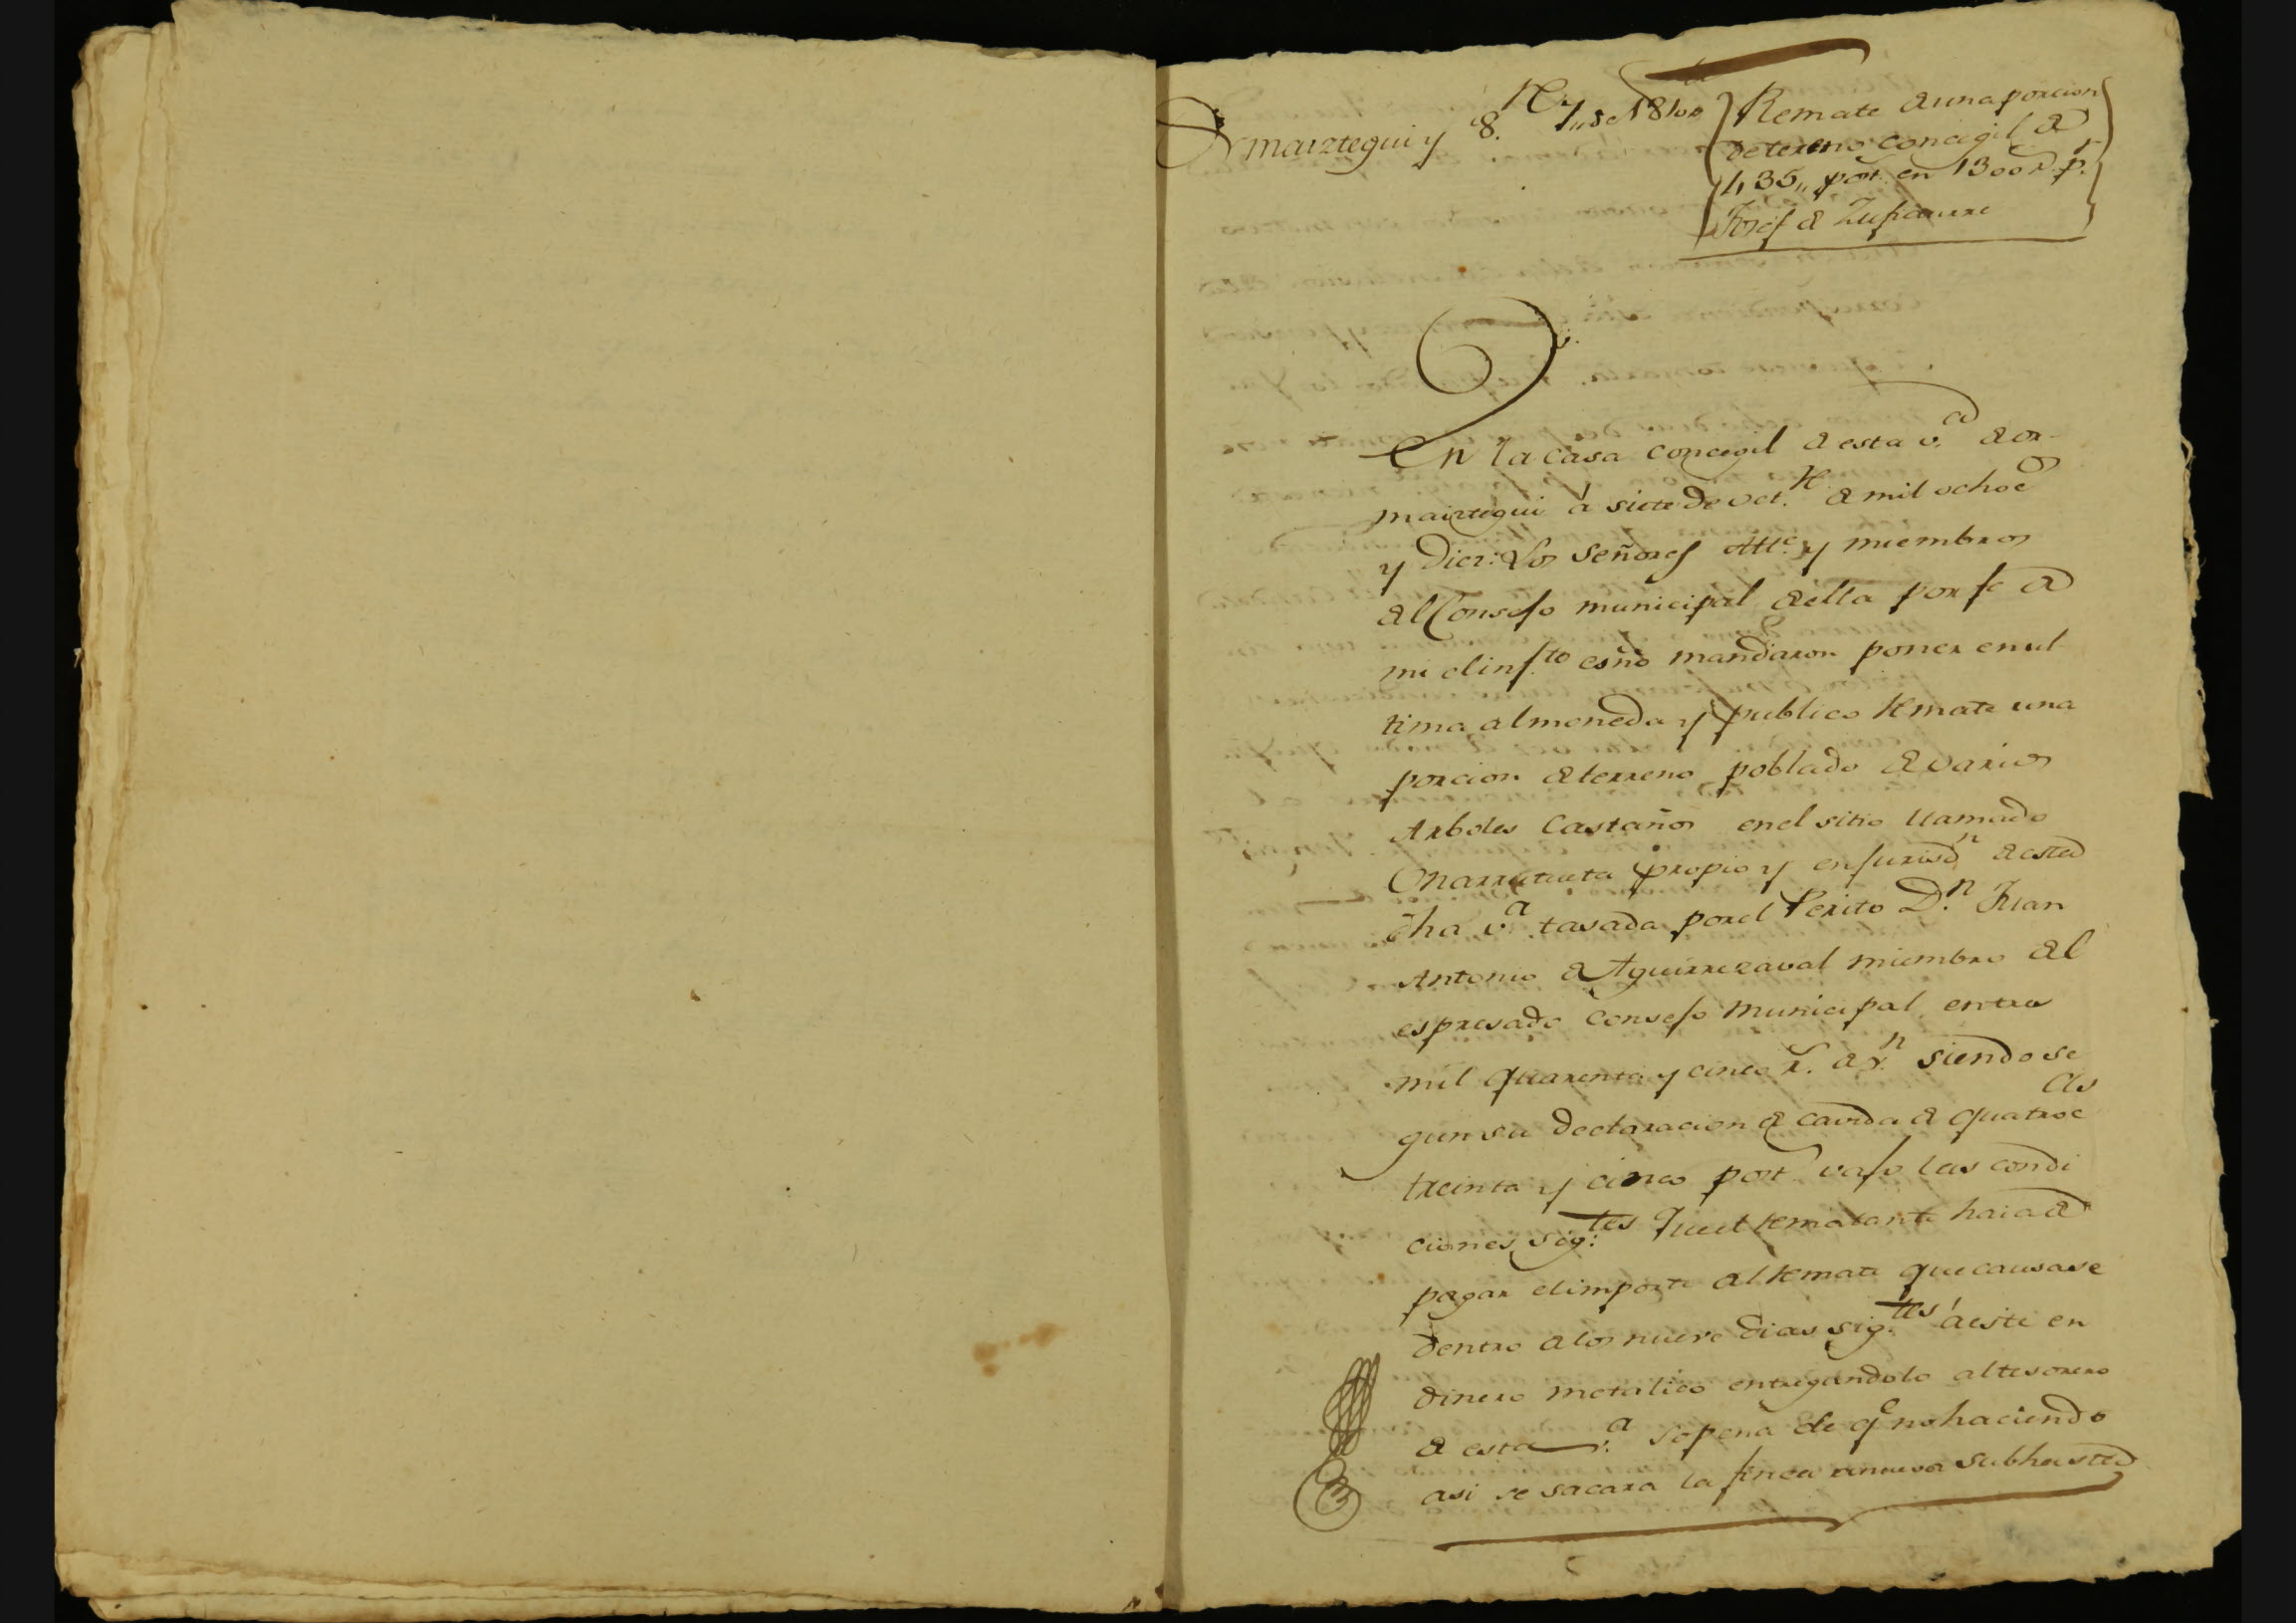 Ormaiztegui y 8.re 7,, de 1810,,
Remate de una porcion
de tereno concegil de
435,, post. en 1300 r. pr.
Josef de Zufiaurre
En la casa concegil de esta v.a de Or-
maiztegui á siete de oct.re de mil ochoc.os
y Diez: Los Señores Alc.e y miembros
del Consejo municipal della por fe de
mi el infto esno mandaron poner en ul
tima almoneda y publico remate una
porcion de terreno poblado de varios
Arboles Castaños en el sitio llamado
propio y en jurisdn de esta
dha v.a tasada por el Perito D.n Juan
Antonio de Aguirrezaval miembro del
espresado consejo municipal en tres
mil quarenta y cinco r.s de v.n siendo se
gun su declaracion de cavida de quatroc
os
treinta y cinco post.s vajo las condi
ciones sig.tes Que el rematante haia de
pagar el importe del remate que causase
dentro de los nueve dias sig.tes á este en
dinero metalico entregandolo al tesorero
de esta v.a sopena de q.e no haciendo
asi se sacara la finca a nueva subhasta